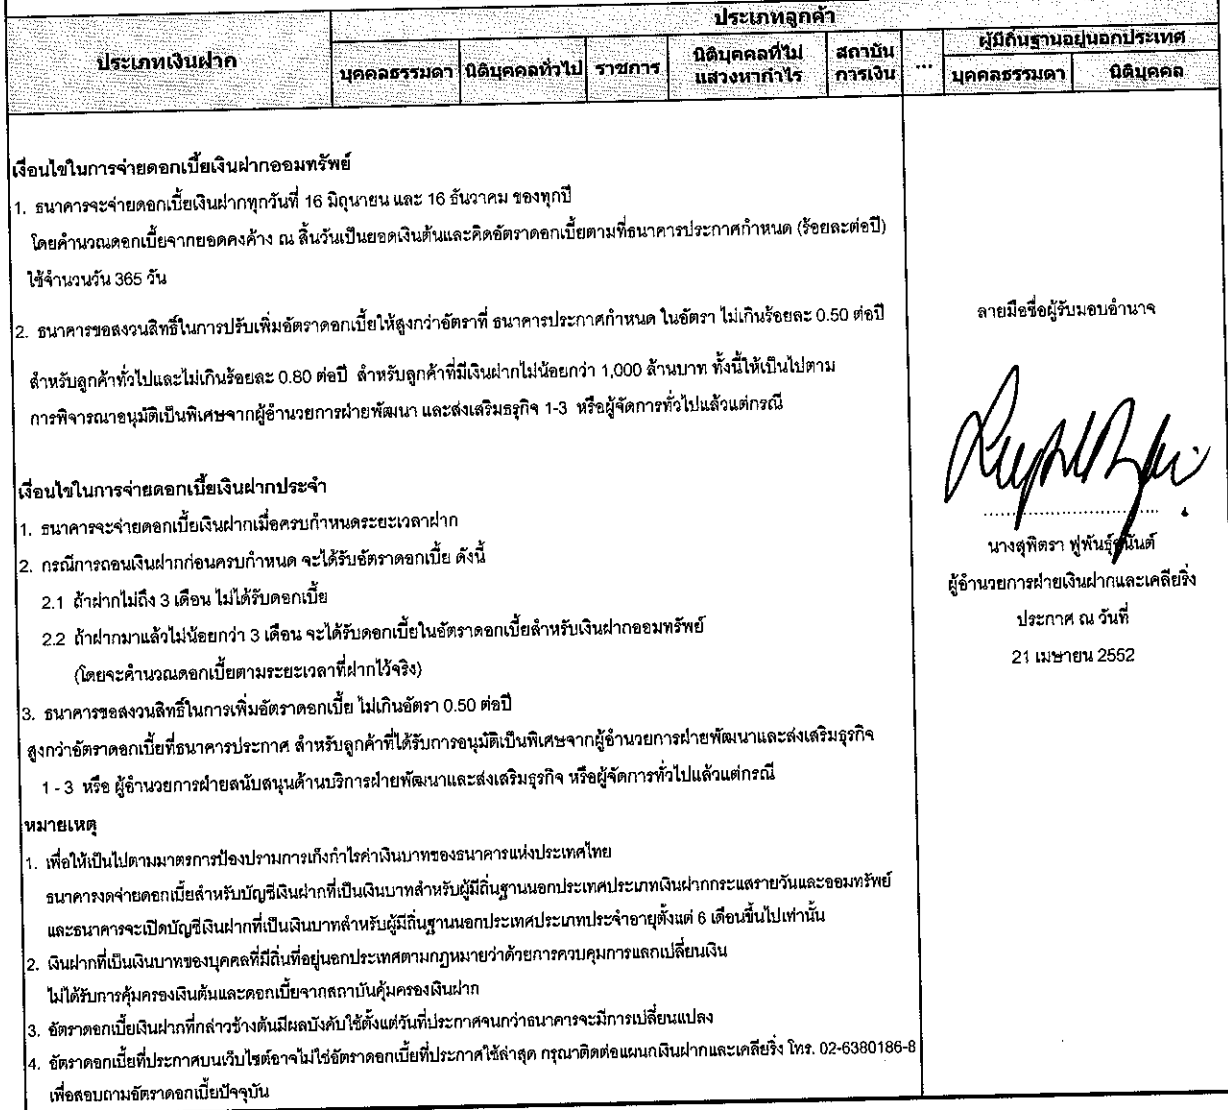 ประเภทลูกค้า
ประเภทเงินฝาก
บุคคลธรรมดา
นิติบุคคลทั่วไป
ราชการ
นิติบุคคลที่ไม่
แสวงหากำไร
สถาบัน
การเงิน
...
ผู้มีถิ่นฐานอยู่นอกประเทศ
บุคคลธรรมดา
นิติบุคคล
เงื่อนไขในการจ่ายดอกเบี้ยเงินฝากออมทรัพย์
1. ธนาคารจะจ่ายดอกเบี้ยเงินฝากทุกวันที่ 16 มิถุนายน และ 16 ธันวาคม ของทุกปี
โดยคำนวณดอกเบี้ยจากยอดคงค้าง ณ สิ้นวันเป็นยอดเงินต้นและคิดอัตราดอกเบี้ยตามที่ธนาคารประกาศกำหนด (ร้อยละต่อปี)
ใช้จำนวนวัน 365 วัน
2. ธนาคารขอสงวนสิทธิ์ในการปรับเพิ่มอัตราดอกเบี้ยให้สูงกว่าอัตราที่ ธนาคารประกาศกำหนด ในอัตรา ไม่เกินร้อยละ 0.50 ต่อปี
สำหรับลูกค้าทั่วไปและไม่เกินร้อยละ 0.80 ต่อปี สำหรับลูกค้าที่มีเงินฝากไม่น้อยกว่า 1,000 ล้านบาท ทั้งนี้ให้เป็นไปตาม
การพิจารณาอนุมัติเป็นพิเศษจากผู้อำนวยการฝ่ายพัฒนา และส่งเสริมธุรกิจ 1-3 หรือผู้จัดการทั่วไปแล้วแต่กรณี
เงื่อนไขในการจ่ายดอกเบี้ยเงินฝากประจำ
1. ธนาคารจะจ่ายดอกเบี้ยเงินฝากเมื่อครบกำหนดระยะเวลาฝาก
2. กรณีการถอนเงินฝากก่อนครบกำหนด จะได้รับอัตราดอกเบี้ย ดังนี้
2.1 ถ้าฝากไม่ถึง 3 เดือน ไม่ได้รับดอกเบี้ย
2.2 ถ้าฝากมาแล้วไม่น้อยกว่า 3 เดือน จะได้รับดอกเบี้ยในอัตราดอกเบี้ยสำหรับเงินฝากออมทรัพย์
(โดยจะคำนวณดอกเบี้ยตามระยะเวลาที่ฝากไว้จริง)
3. ธนาคารขอสงวนสิทธิ์ในการเพิ่มอัตราดอกเบี้ย ไม่เกินอัตรา 0.50 ต่อปี
สูงกว่าอัตราดอกเบี้ยที่ธนาคารประกาศ สำหรับลูกค้าที่ได้รับการอนุมัติเป็นพิเศษจากผู้อำนวยการฝ่ายพัฒนาและส่งเสริมธุรกิจ
1 - 3 หรือ ผู้อำนวยการฝ่ายสนับสนุนด้านบริการฝ่ายพัฒนาและส่งเสริมธุรกิจ หรือผู้จัดการทั่วไปแล้วแต่กรณี
หมายเหตุ
1. เพื่อให้เป็นไปตามมาตรการป้องปรามการเก็งกำไรค่าเงินบาทของธนาคารแห่งประเทศไทย
ธนาคารงดจ่ายดอกเบี้ยสำหรับบัญชีเงินฝากที่เป็นเงินบาทสำหรับผู้มีถิ่นฐานนอกประเทศประเภทเงินฝากกระแสรายวันและออมทรัพย์
และธนาคารจะเปิดบัญชีเงินฝากที่เป็นเงินบาทสำหรับผู้มีถิ่นฐานนอกประเทศประเภทประจำอายุตั้งแต่ 6 เดือนขึ้นไปเท่านั้น
2. เงินฝากที่เป็นเงินบาทของบุคคลที่มีถิ่นที่อยู่นอกประเทศตามกฎหมายว่าด้วยการควบคุมการแลกเปลี่ยนเงิน
ไม่ได้รับการคุ้มครองเงินต้นและดอกเบี้ยจากสถาบันคุ้มครองเงินฝาก
3. อัตราดอกเบี้ยเงินฝากที่กล่าวข้างต้นมีผลบังคับใช้ตั้งแต่วันที่ประกาศจนกว่าธนาคารจะมีการเปลี่ยนแปลง
4. อัตราดอกเบี้ยที่ประกาศบนเว็บไซต์อาจไม่ใช่อัตราดอกเบี้ยที่ประกาศใช้ล่าสุด กรุณาติดต่อแผนกเงินฝากและเคลียริ่ง โทร. 02-6380186-8
เพื่อสอบถามอัตราดอกเบี้ยปัจจุบัน
ลายมือชื่อผู้รับมอบอำนาจ
นางสุพิตรา
ผู้อำนวยการฝ่ายเงินฝากและเคลียริ่ง
ประกาศ ณ วันที่
21 เมษายน 2552